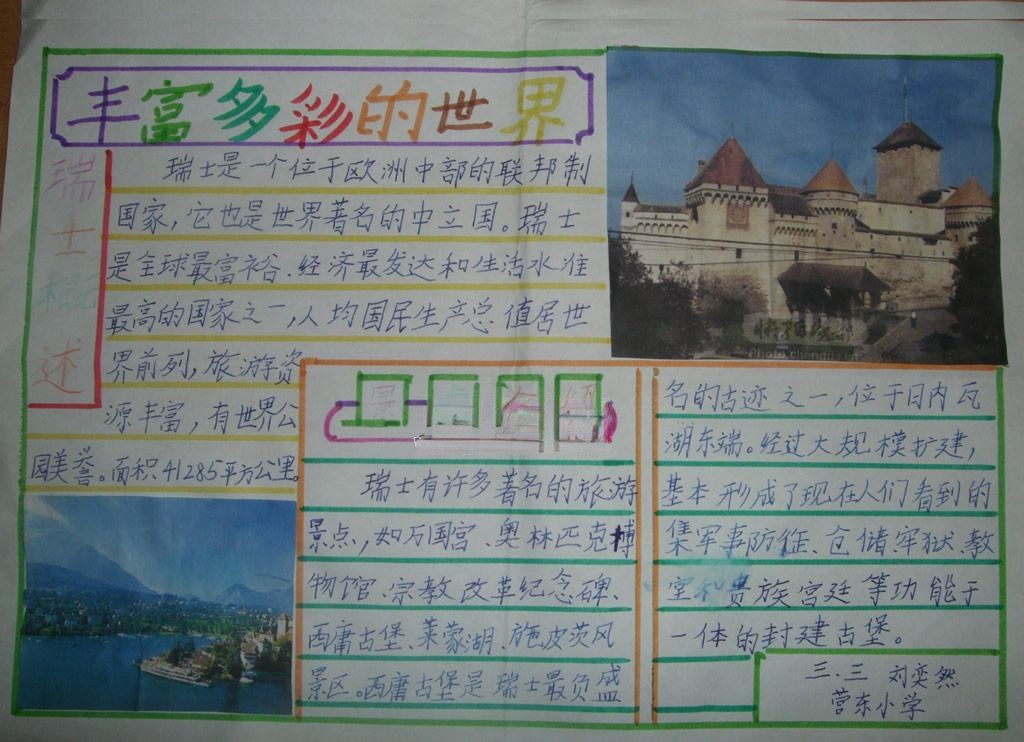 丰富多彩的世界
瑞士概述
瑞士是一个位于欧洲中部的联邦制
国家，它也是世界著名的中立国。瑞士
是全球最富裕、经济最发达和生活水准
最高的国家之一，人均国民生产总值居世
界前列，旅游资
源丰富，有世界公
园美誉。面积41285平方公里。
景
瑞士有许多著名的旅游
景点，如万国宫、奥林匹克博
物馆、宗教改革纪念碑、
西庸古堡、莱蒙湖、施皮茨风
景区。西庸古堡是瑞士最负盛
名的古迹之一，位于日内瓦
湖东端。经过大规模扩建，
基本形成了现在人们看到的
集军事防住、仓储、牢狱、教
堂和贵族宫廷等功能于
一体的封建古堡。
三.三 刘奕然
营东小学